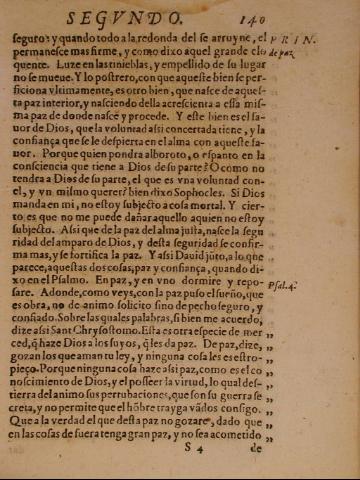 SEGVNDO. 140
seguro: y quando todo a la redonda del se arruyne, el PRIN.
permanesce mas firme, y como dixo aquel grande elo de paz.
quente. Luze en las tinieblas, y empellido de su lugar
no se mueue. Y lo postrero, con que aqueste bien se per-
ficiona vltimamente, es otro bien, que nasce de aques-
ta paz interior, y nasciendo della acrescienta a essa mis-
ma paz de donde nasce y procede. Y este bien es el fa-
uor de Dios, que la voluntad assi concertada tiene, y la
confiança que se le despierta en el alma con aqueste fa-
uor. Porque quien pondra alboroto, o espanto en la
consciencia que tiene a Dios de su parte? O como no
tendra a Dios de su parte, el que es vna voluntad con
el, y vn mismo querer? bien dixo Sophocles. Si Dios
manda en mi, no estoy subjecto a cosa mortal. Y cier-
to es que no me puede dañar aquello aquien no estoy
subjecto. Assi que de la paz del alma justa, nasce la segu
ridad del amparo de Dios, y desta seguridad se confir-
ma mas, y se fortifica la paz. Y assi Dauid juto, a lo que
parece, aquestas dos cosas, paz y confiança, quando di-
xo en el Psalmo. En paz, y en vno dormire y repo-
sare. Adonde, como veys, con la paz puso el sueño, que Psal. 4.
es obra, no de animo solicito sino de pecho seguro, y
confiado. Sobre las quales palabras, si bien me acuerdo,
dize assi Sant Chrysostomo. Esta es otra especie de mer „
ced, q̃ haze Dios a los suyos, q̃ les da paz. De paz, dize, „
gozan los que aman tu ley, y ninguna cosa les es estro- „
pieço. Porque ninguna cosa haze assi paz, como es el co „
noscimiento de Dios, y el posseer la virtud, lo qual des- „
tierra del animo sus perturbaciones, que son su guerra se „
creta, y no permite que el hõbre trayga vãdos consigo. „
Que a la verdad el que desta paz no gozare, dado que „
en las cosas de fuera tenga gran paz, y no sea acometido „
S 4 de